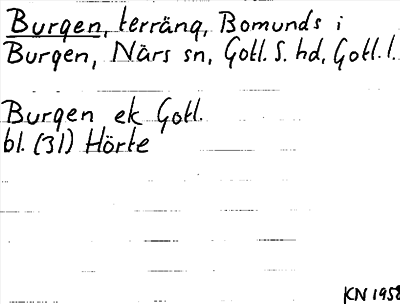 Burgen, terräng, Bomunds i
Burgen, Närs sn, Gotl. S. hd, Gotl. l.
Burgen ek Gotl.
bl. (31) Hörte
KN 1958